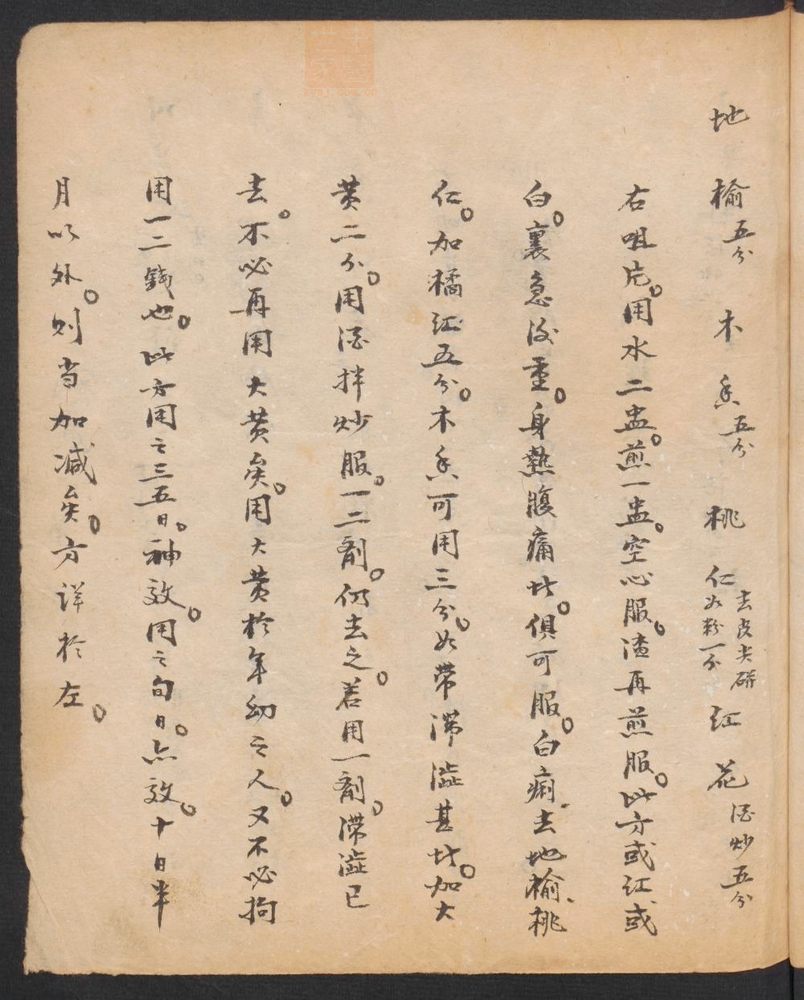 地榆五分 木香五分 桃仁去皮尖研如粉一分 红花酒炒五分
右咀片。用水二盅。煎一盅。空心服。渣再煎服。此方或红或
白。裏急後重。身熱腹痛者。俱可服。白痢。去地榆、桃
仁。加橘红五分。木香可用三分。如带滞澁甚者。加大
黄二分。用酒拌炒服。一二剤。仍去之。若用一剤。滞澁已
去。不必再用大黄矣。用大黄於年幼之人。又不必拘
用一二錢也。此方用之三五日。神效。用之旬日。亦效。十日半
月以外。则当加减矣。方详於左。